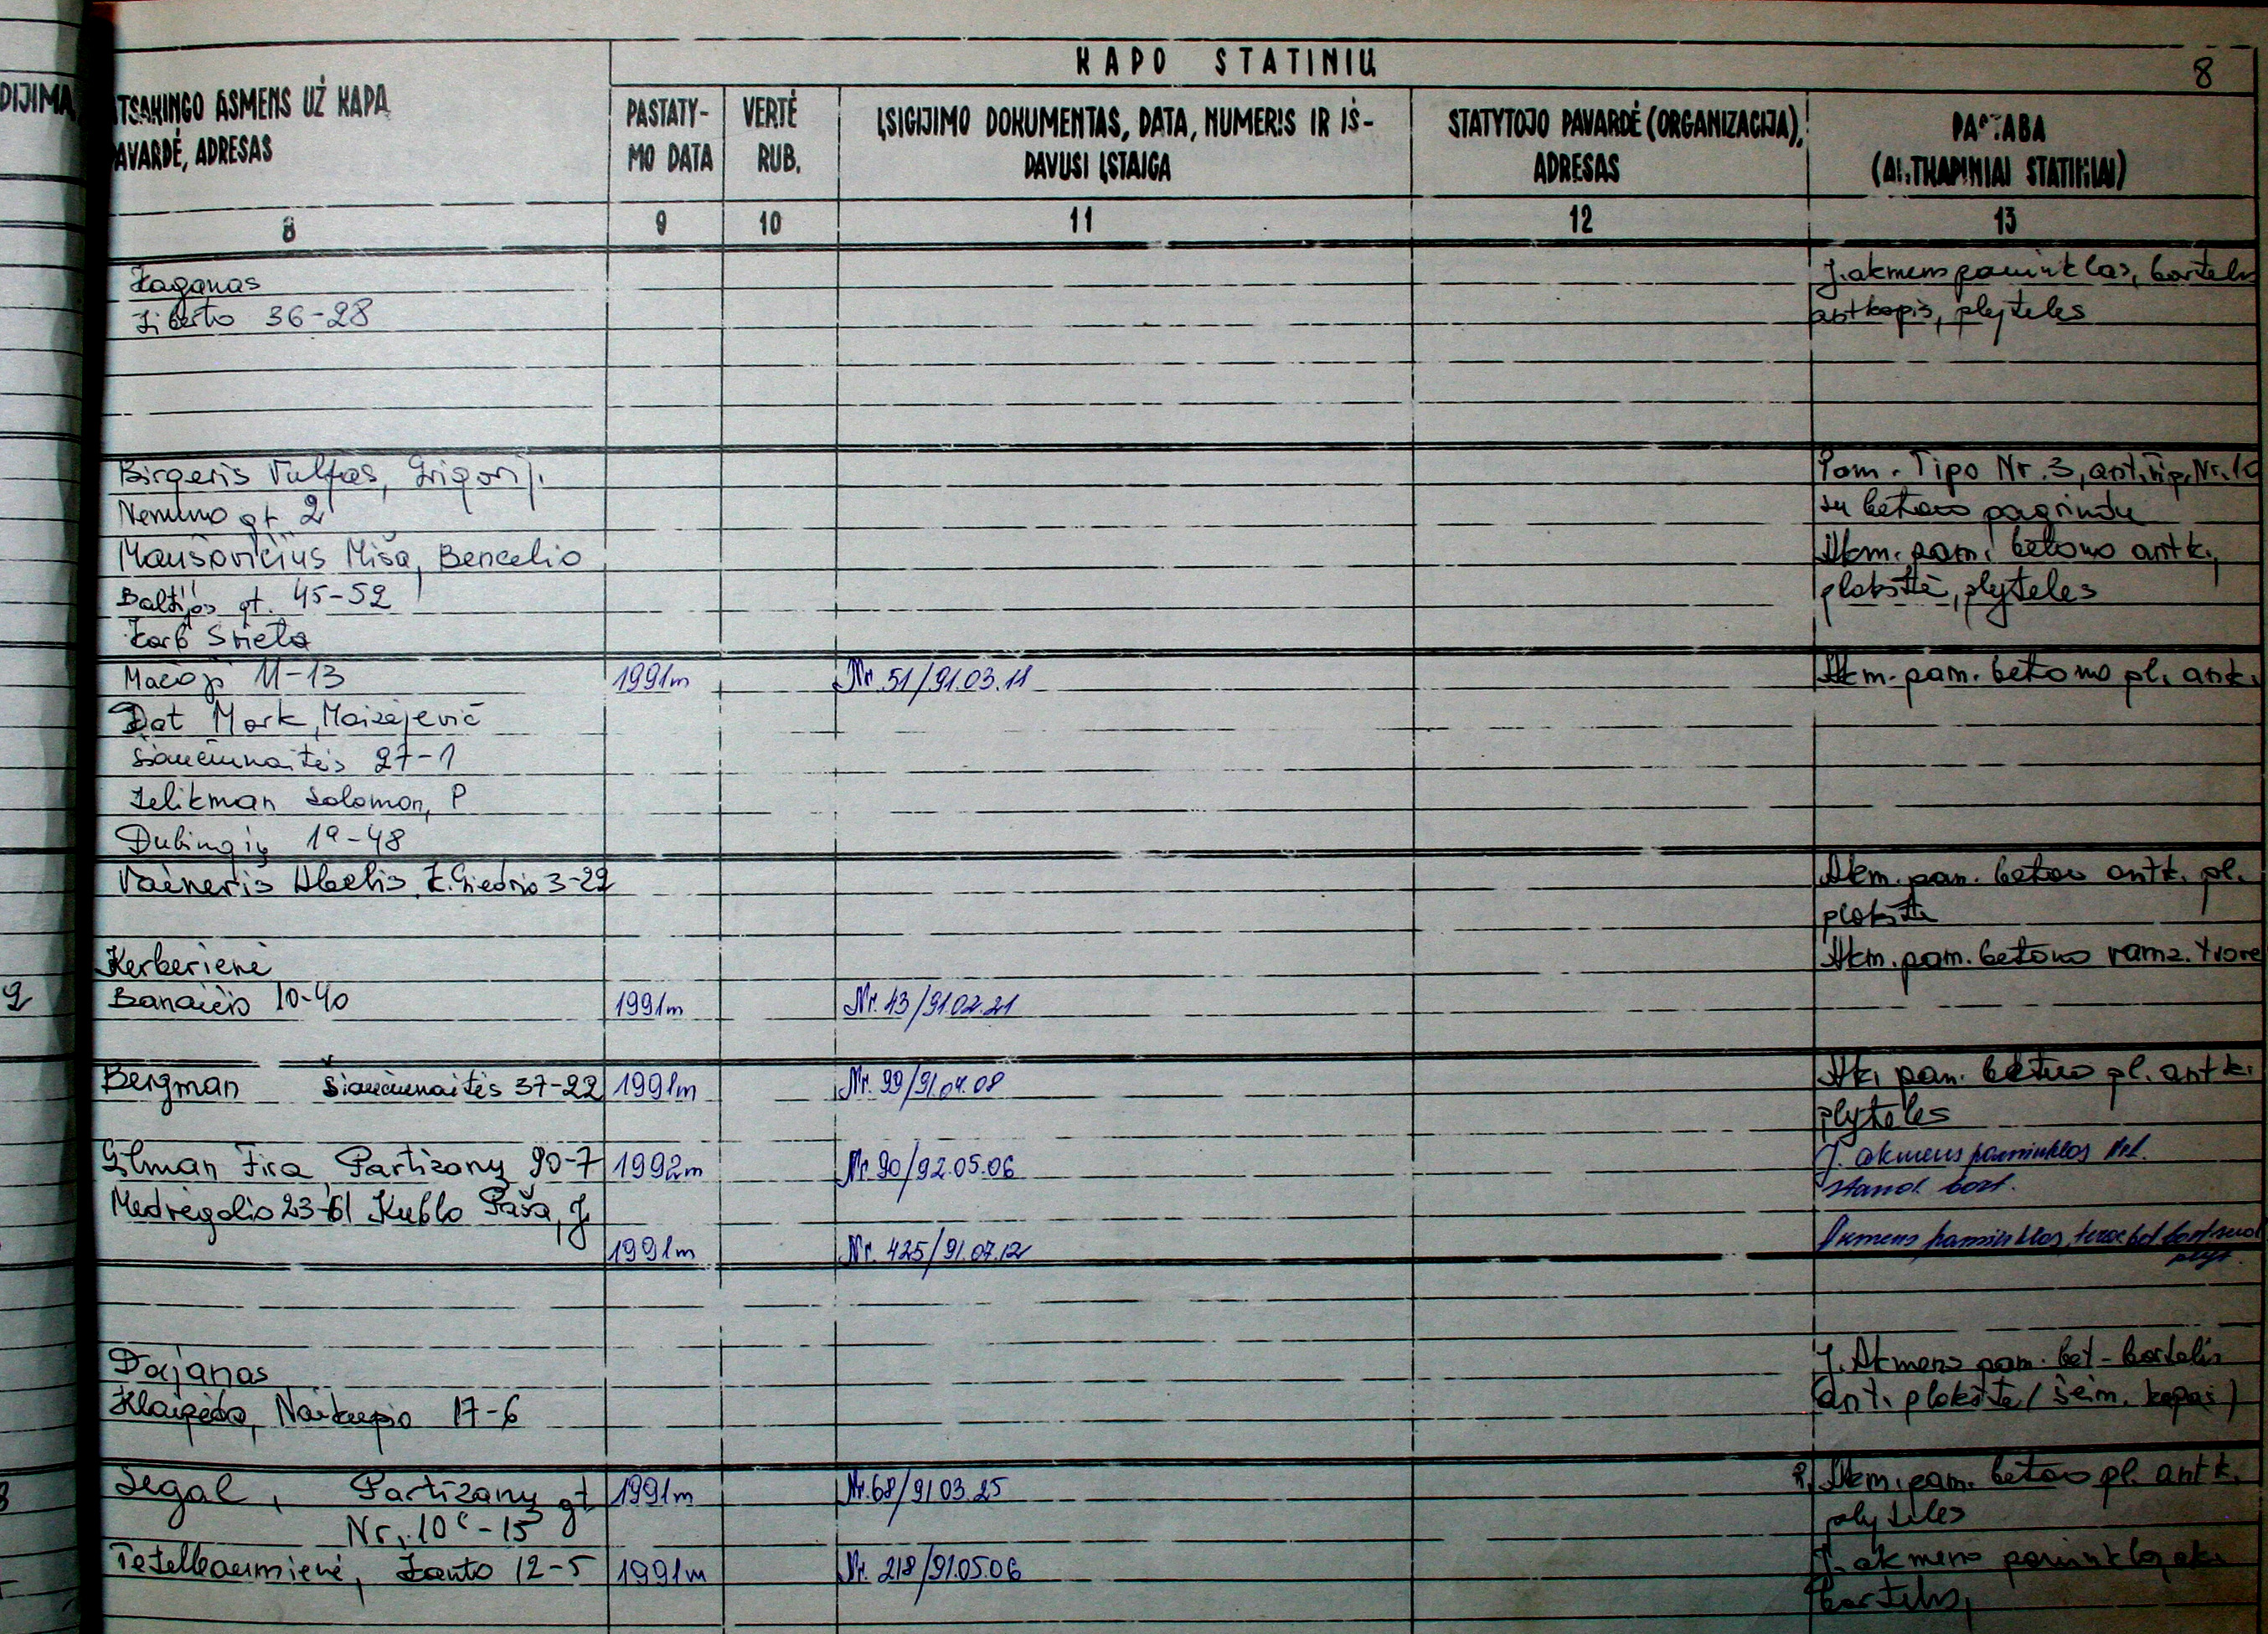 KAPO STATINIŲ
8
DIJIMA
ATSAKINGO ASMENS UŽ KAPĄ
PAVARDĖ, ADRESAS
PASTATY-
MO DATA
VERTĖ
RUB.
ĮSIGIJIMO DOKUMENTAS, DATA, NUMERIS IR IŠ-
DAVUSI ĮSTAIGA
STATYTOJO PAVARDĖ (ORGANIZACIJA),
ADRESAS
PASTABA
(ANTKAPINIAI STATINIAI)
8 9 10 11 12 13
Kaganas J.akmens paminklas, bortelis
Žiberto 36-28 antkapis, plyteles
Birgeris Vulfas, Grigorij. Pam. Tipo Nr.3, ant.tip.Nr.10
Nemuno gt. 2 su betono pagrindu
Maušovičius Miša, Bencelio Akm. pam. betono antk.,
Baltijos gt. 45-52 plokštė, plyteles
Korb Svieta
Mačių 11-13 1991m Nr. 51/91.03.11 Akm. pam. betono pl. antk.
Dat Mark, Moizejevič
Šiaučiunaitės 27-1
Zelikman Solomon, P
Dubingių 19-48
Vaineris Abelis, K.Giedrio 3-22 Akm. pam. betono antk. pl.
plokšte
Kerberienė Akm. pam. betono ramz. tvore
2 Banaičio 10-40 1991m Nr. 43/91.02.21
Bergman Šiaučiunaitės 37-22 1991m Nr. 99/91.04.08 Ak. pam. betono pl. antk.
plyteles
Gilman Fira, Partizanų 90-7 1992m Nr. 90/92.05.06 J. akmens paminklas bet.
stand. bort.
Medvėgolio 23-61 Kublo Paša, J.
1991m Nr. 425/91.07.12 Akmens paminklas,
plyt.
Dajanas J. Akmens pam. bet-bortelis
Klaipėda, Naikupio 17-6 ant. plokšte (šeim. kapas)
Segal, Partizanų gt 1991m Nr.68/91.03.25 Akm. pam. betono pl. antk.
Nr. 10 - 15 plyteles
Teitelbaumienė, Zanto 12-5 1991m Nr. 218/91.05.06 J. akmens paminklas
bortelis,